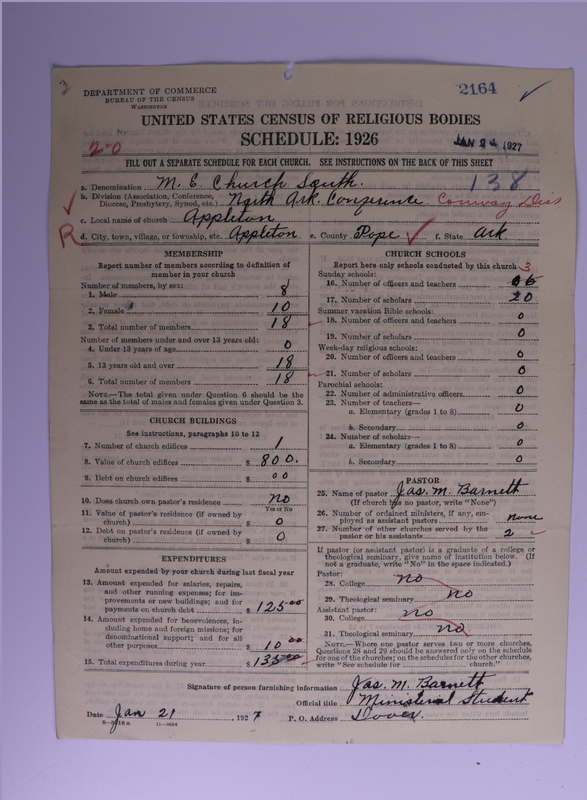 3
DEPARTMENT OF COMMERCE
BUREAU OF THE CENSUS
WASHINGTON
2164
UNITED STATES CENSUS OF RELIGIOUS BODIES
SCHEDULE: 1926
JAN 24 1927
2-0
FILL OUT A SEPARATE SCHEDULE FOR EACH CHURCH. SEE INSTRUCTIONS ON THE BACK OF THIS SHEET
138
a. Denomination M. E. Church South.
b. Division (Association, Conference, Diocese, Presbytery, Synod, etc.) North Ark. Conference Conway Dis
c. Local name of church Appleton
R
d. City, town, village, or township, etc. Appleton e. County Pope f. State Ark
MEMBERSHIP
Report number of members according to definition of
member in your church
Number of members, by sex:
1. Male 8
2. Female 10
3. Total number of members 18
Number of members under and over 13 years old:
4. Under 13 years of age 0
5. 13 years old and over 18
6. Total number of members 18
NOTE.—The total given under Question 6 should be
same as the total of males and females given under Question 3.
CHURCH BUILDINGS
See instructions, paragraphs 10 to 12
7. Number of church edifices 1
8. Value of church edifices $ 800.
9. Debt on church edifices $ 00
10. Does church own pastor's residence no
Yes or No
11. Value of pastor's residence (if owned by
church) $ 0
12. Debt on pastor's residence (if owned by
church) $ 0
EXPENDITURES
Amount expended by your church during last fiscal year
13. Amount expended for salaries, repairs,
and other running expenses; for im-
provements or new buildings; and for
payments on church debt $ 125.00
14. Amount expended for benevolences, in-
cluding home and foreign missions; for
denominational support; and for all
other purposes $ 10 00
15. Total expenditures during year $ 135.00
CHURCH SCHOOLS
Report here only schools conducted by this church 3
Sunday schools:
16. Number of officers and teachers 5
17. Number of scholars 20
Summer vacation Bible schools:
18. Number of officers and teachers 0
19. Number of scholars 0
Week-day religious schools:
20. Number of officers and teachers 0
21. Number of scholars 0
Parochial schools:
22. Number of administrative officers 0
23. Number of teachers—
a. Elementary (grades 1 to 8) 0
b. Secondary 0
24. Number of scholars—
a. Elementary (grades 1 to 8) 0
b. Secondary 0
PASTOR
25. Name of pastor Jas. M. Barnett
(If church has no pastor, write "None")
26. Number of ordained ministers, if any, em-
ployed as assistant pastors none
27. Number of other churches served by the
pastor or his assistants 2
If pastor (or assistant pastor) is a graduate of a college or
theological seminary, give name of institution below. (If
not a graduate, write "No" in the space indicated.)
Pastor:
28. College no
29. Theological seminary no
Assistant pastor:
30. College no
31. Theological seminary no
NOTE.—Where one pastor serves two or more churches,
Questions 28 and 29 should be answered only on the schedule
for one of the churches; on the schedules for the other churches,
write "See schedule for church."
Signature of person furnishing information Jas. M. Barnett
Official title Ministerial Student
Date Jan 21, 1927 P. O. Address Dover.